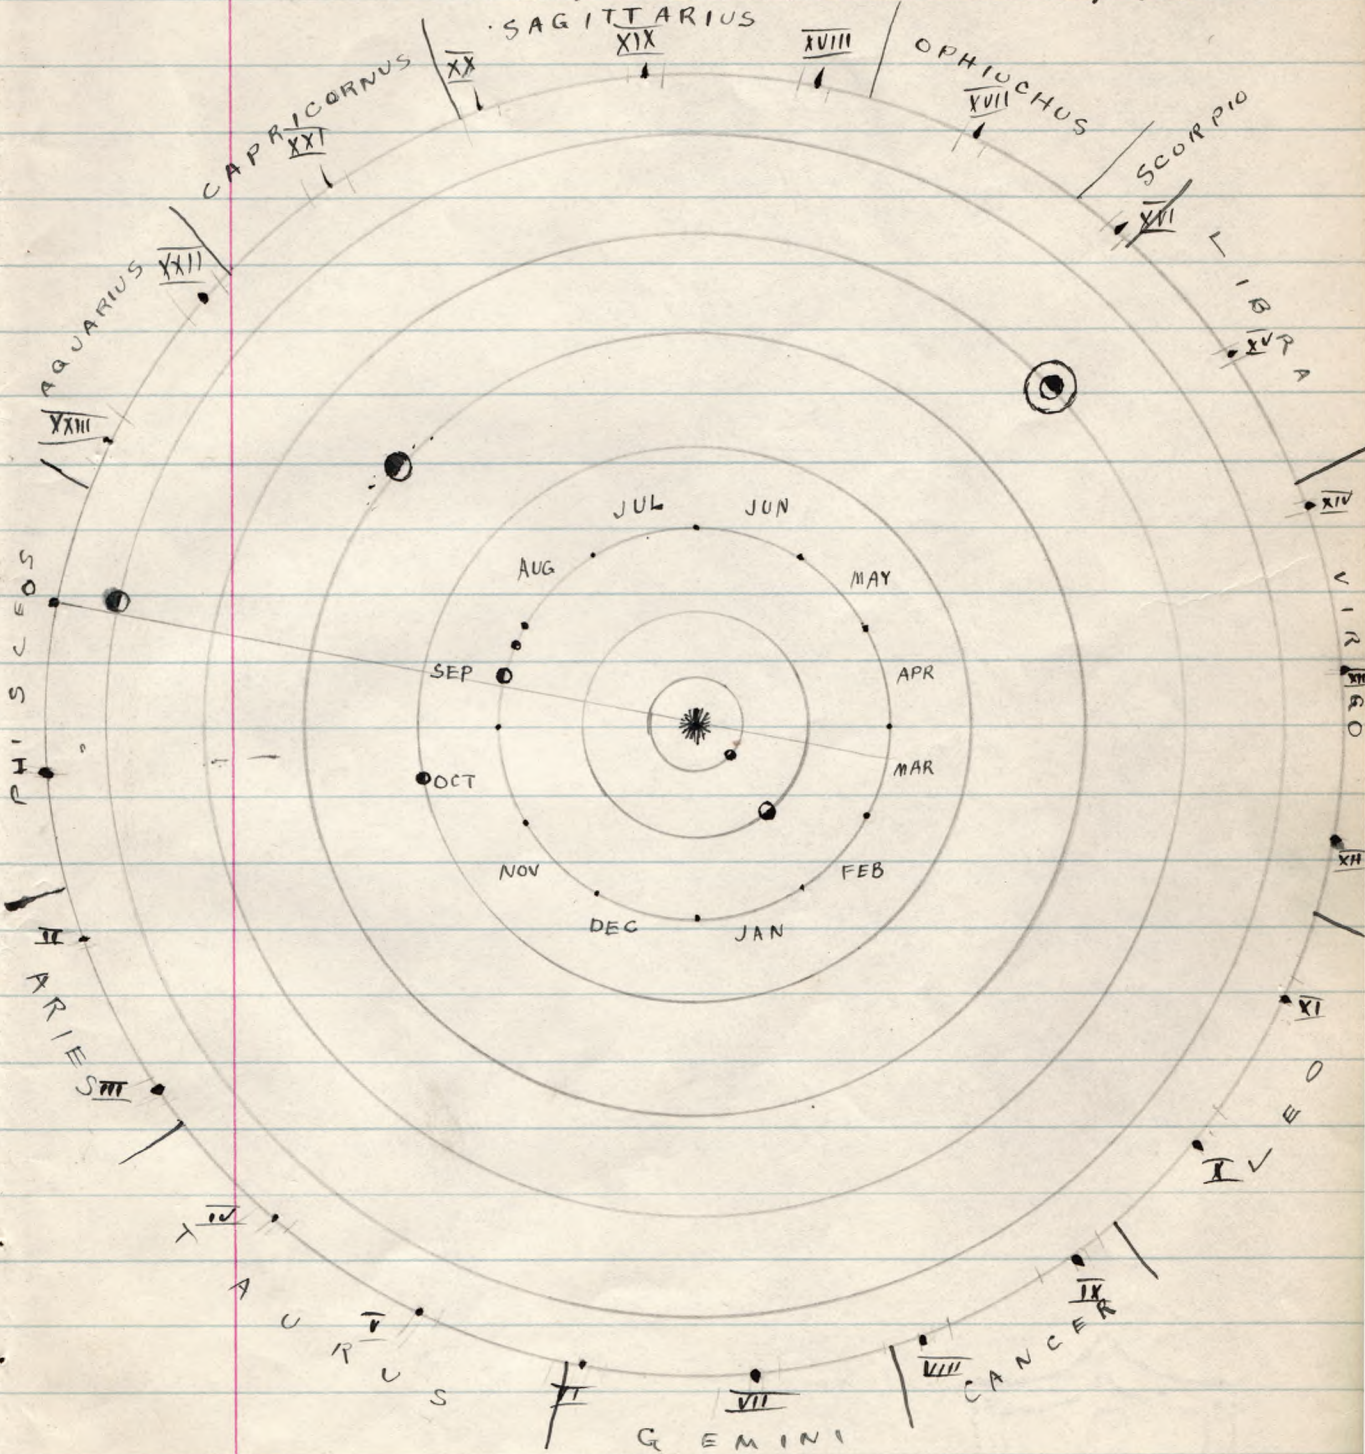 SAGITTARIUS
XIX
XVIII
OPHIUCHUS
XVII
SCORPIO
XVI
LIBRA
XV
XIV
VIRGO
XIII
XII
XI
LEO
X
IX
CANCER
VIII
GEMINI
VII
VI
TAURUS
V
IV
ARIES
III
II
PHISCEOS
AQUARIUS
XXIII
XXII
CAPRICORNUS
XXI
XX
JUL
JUN
AUG
MAY
SEP
APR
OCT
MAR
NOV
FEB
DEC
JAN